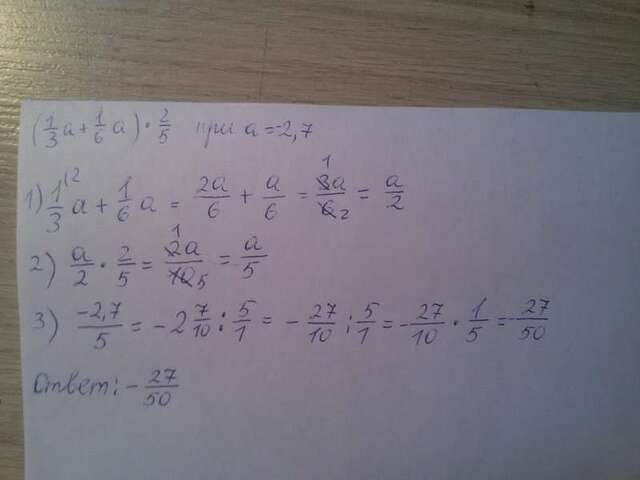 (1/3 a + 1/6 a) · 2/5 при a = -2,7
1) 1/3 \2 a + 1/6 a = 2a/6 + a/6 = 3a 1/6 2 = a/2
2) a/2 · 2/5 = 2a 1/10 5 = a/5
3) -2,7/5 = - 2 7/10 : 5/1 = - 27/10 : 5/1 = - 27/10 · 1/5 = - 27/50
Ответ: - 27/50